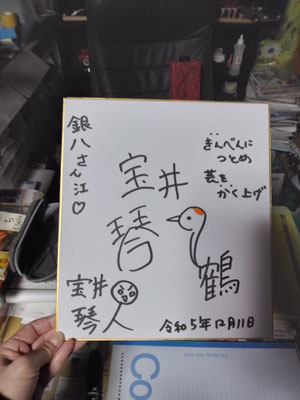 銀八さん江♡
ぎんぺんに
つとめ
芸を
がく上げ
宝井
琴鶴
宝井
琴人
令和5年12月11日
Co